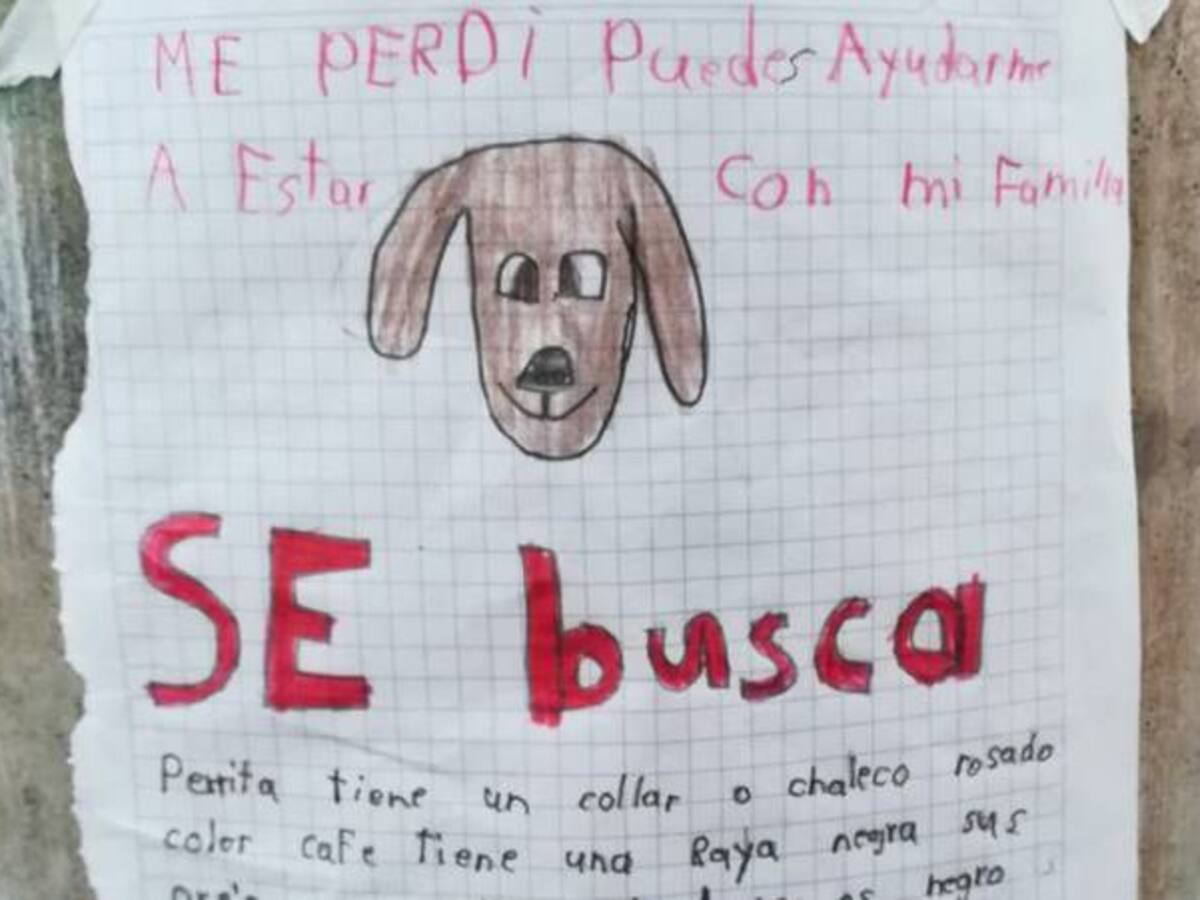 ME PERDi Puedes Ayudarme
A Estar Con mi Familia
SE busca
Perrita tiene un collar o chaleco rosado
color cafe tiene una Raya negra sus
es negro